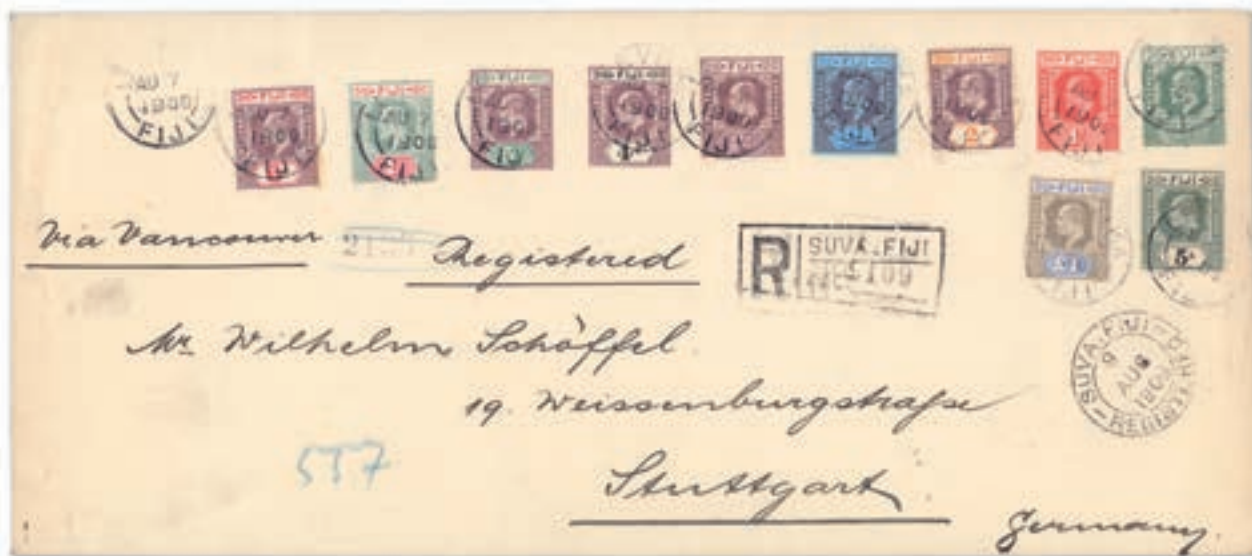 AU 7
1900
FIJI
FIJI FIJI FIJI FIJI FIJI FIJI FIJI FIJI FIJI
FIJI FIJI
£1 5/-
Via Vancouver Registered
R SUVA.FIJI
Mr. Wilhelm Schöffel
19. Weissenburgstraße
Stuttgart
Germany
SUVA.FIJI
9
AUG
REGISTERED
557